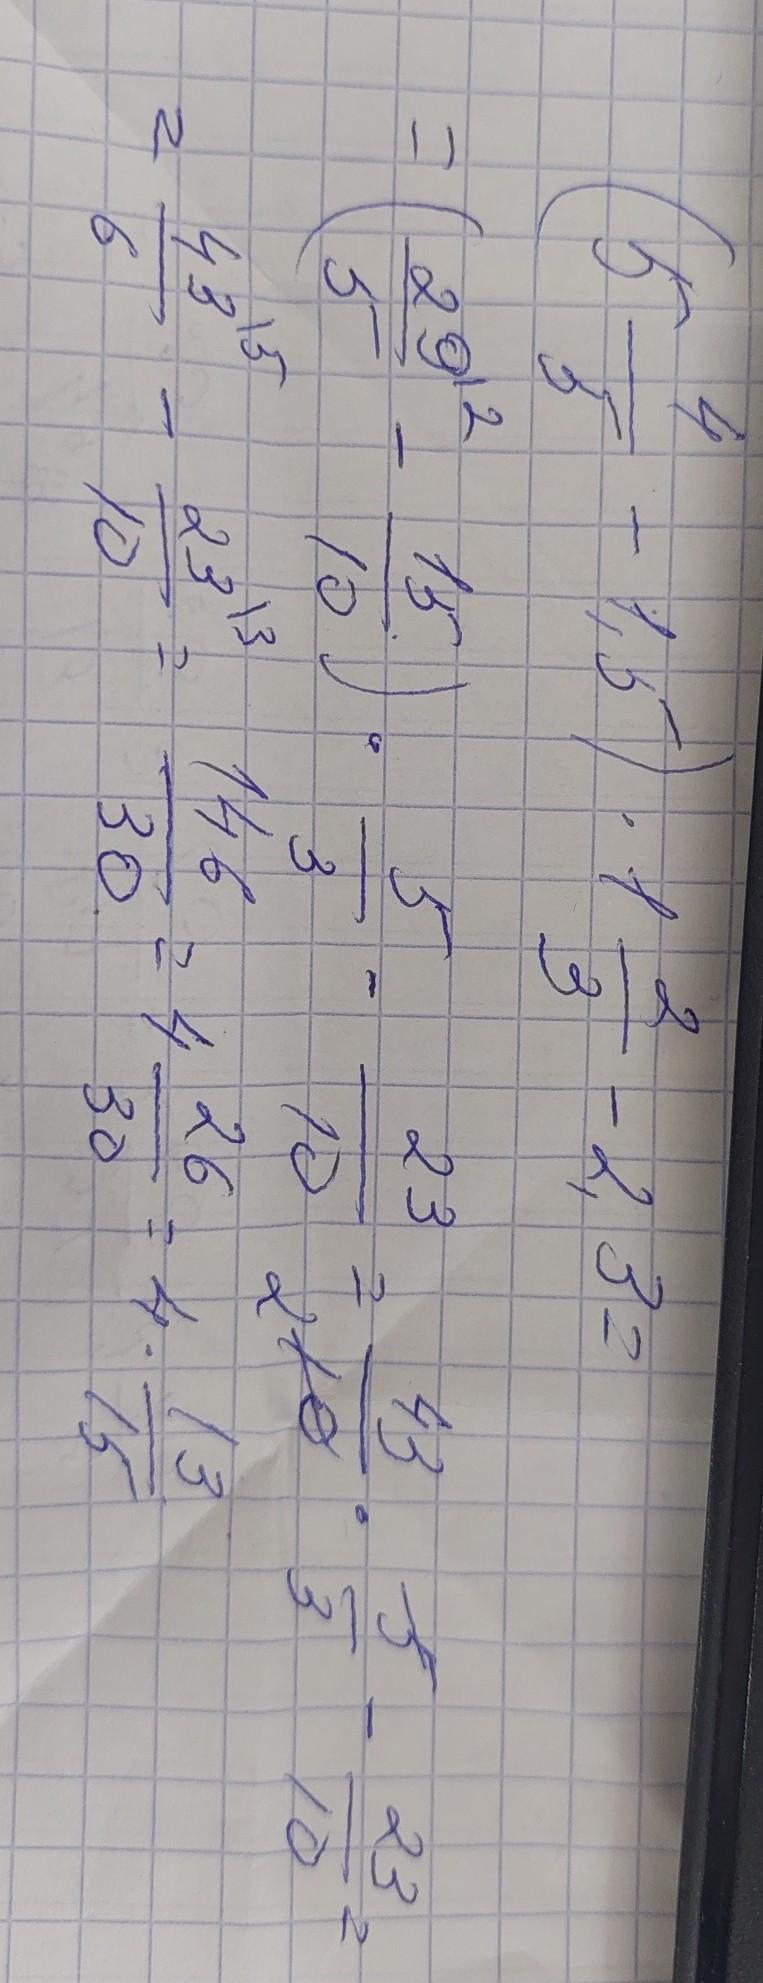 (5 4/5 - 1,5) · 1 2/3 - 2,3 =
= (29\2/5 - 15/10) · 5/3 - 23/10 = 43/2 10 · 5/3 - 23/10 =
= 43\5/6 - 23\3/10 = 146/30 = 4 26/30 = 4 · 13/15